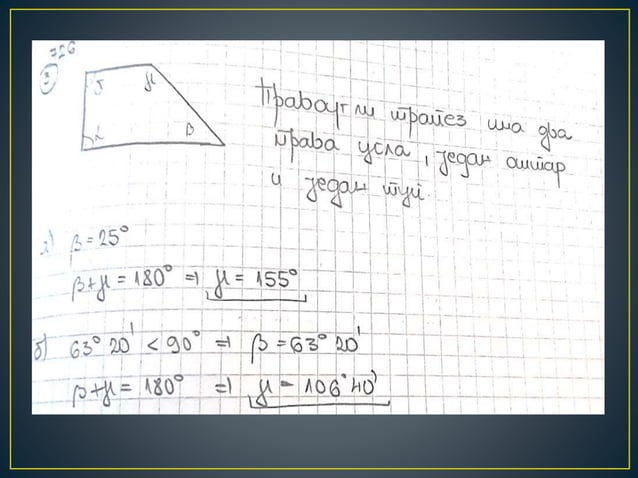 726
3
δ γ
α β
Правоугли трапез има два
права угла, један оштар
и један туп.
а) β = 25°
β + γ = 180° ⇒ γ = 155°
б) 63° 20' < 90° ⇒ β = 63° 20'
β + γ = 180° ⇒ γ = 106° 40'